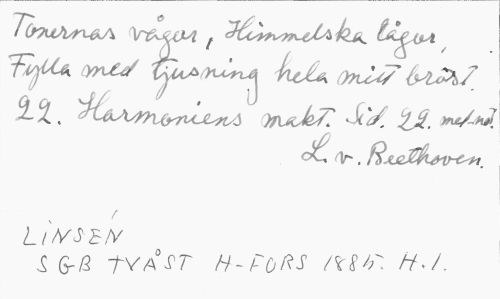 Tonernas vågor, Himmelska lågor,
Fylla med tjusning hela mitt bröst.
22. Harmoniens makt. Sid. 22. med not.
L. v. Beethoven.
LINSÉN
SGB TVÅST H-FORS 1885. H.1.